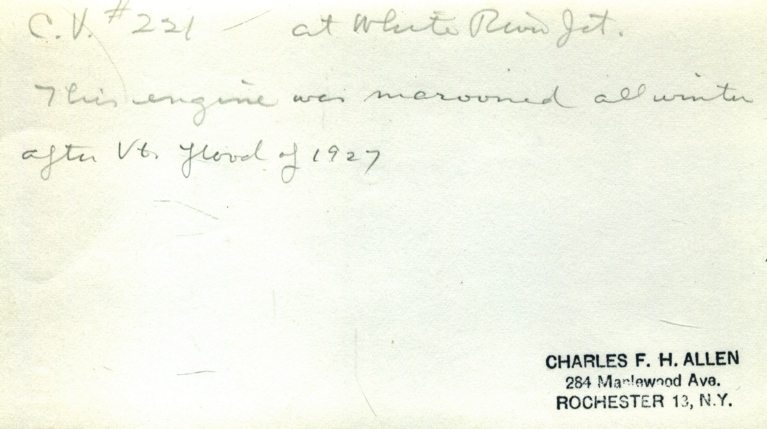 C.V. #221 - at White River Jct.
This engine was marooned all winter
after Vt. flood of 1927
CHARLES F. H. ALLEN
284 Maplewood Ave.
ROCHESTER 13, N.Y.